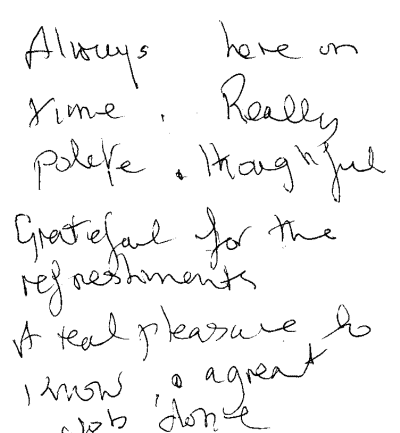 Always here on
time. Really
polite. thoughtful
Grateful for the
refreshments
A real pleasure to
know, a great
Job done